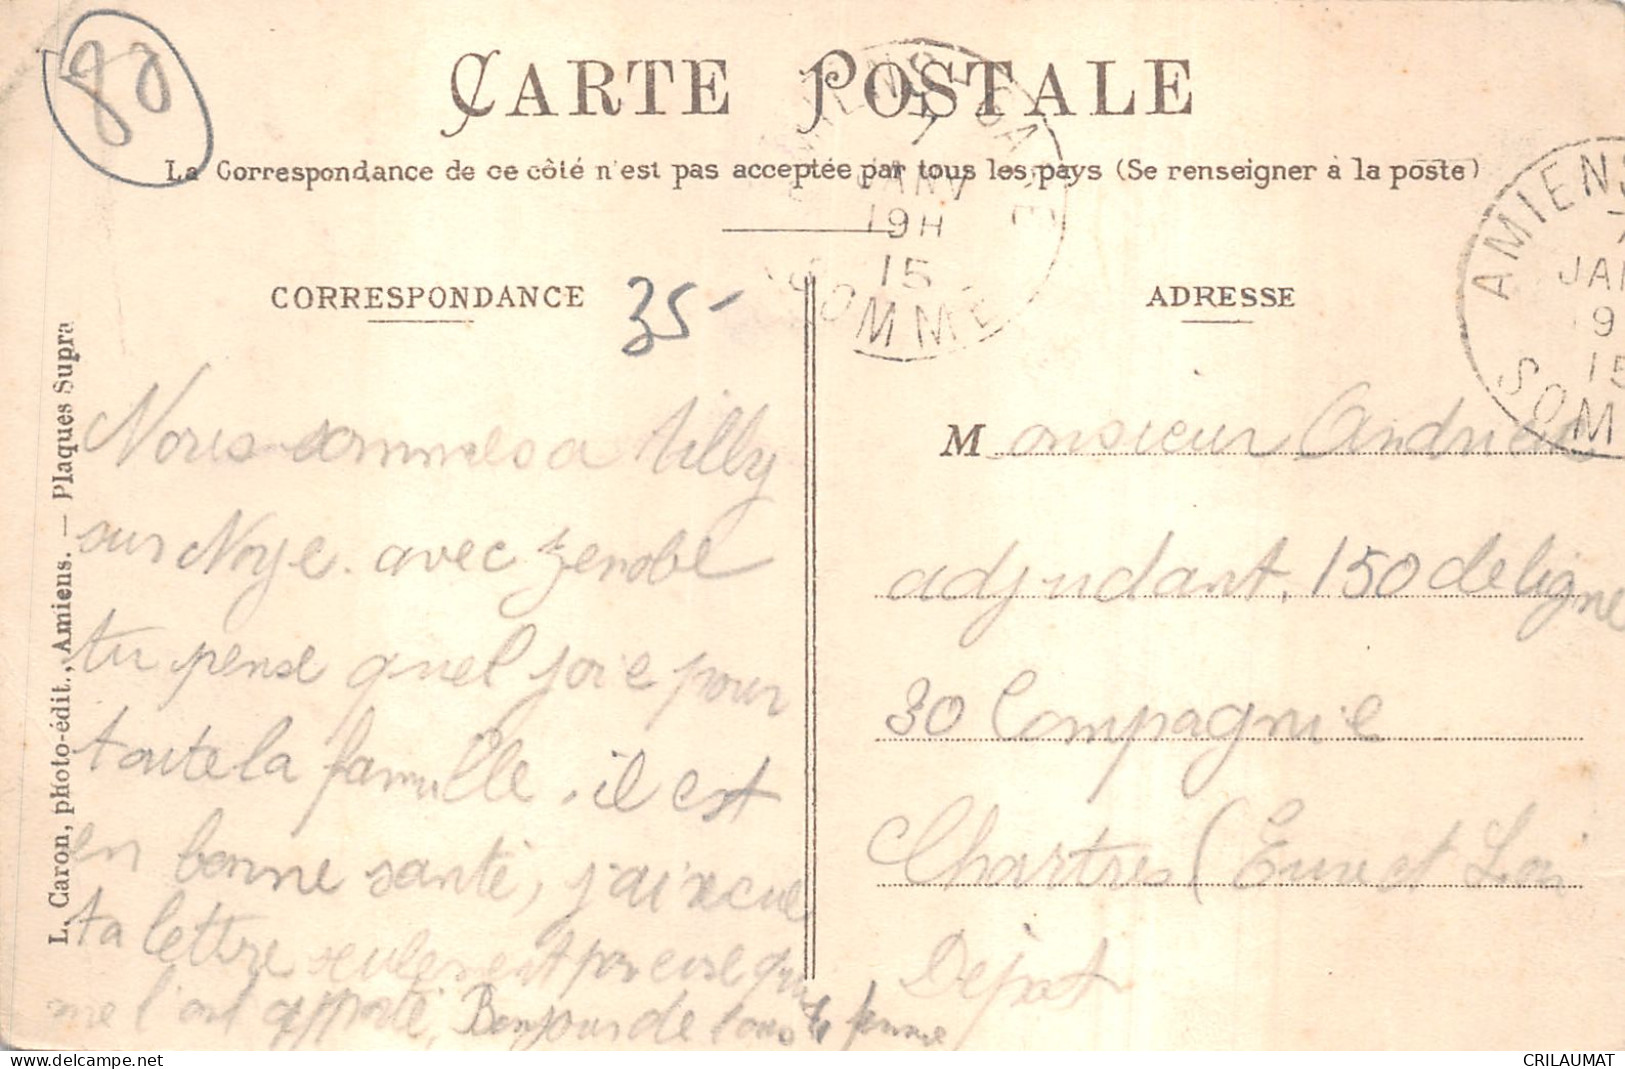 80
CARTE POSTALE
La Correspondance de ce côté n'est pas acceptée par tous les pays (Se renseigner à la poste)
AMIENS GARE
7
JANV
19H
15
SOMME
AMIENS
7
JAN
9
15
SOMM
CORRESPONDANCE
35-
ADRESSE
L. Caron, photo-édit., Amiens. — Plaques Supra
Nous sommes a Ailly
sur Noye. avec Zenobe
tu pense quel joie pour
toute la famille. il est
en bonne santé, j'ai recue
ta lettre seulement
me l'ont apporté, Bonjour de tous ta femme
Monsieur Andrieu
adjudant, 150 de ligne
30 Compagnie
Chartres (Eure et Loi
Dépot
CRILAUMAT